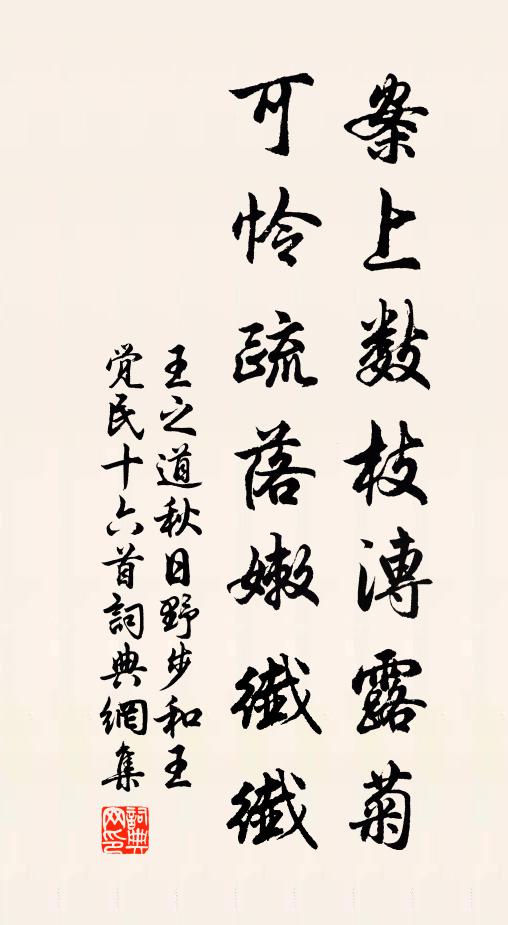 案上数枝漙露菊
可怜疏落嫩纖纖
王之道秋日野步和王
覺民十六首詞典網集
詞典网印